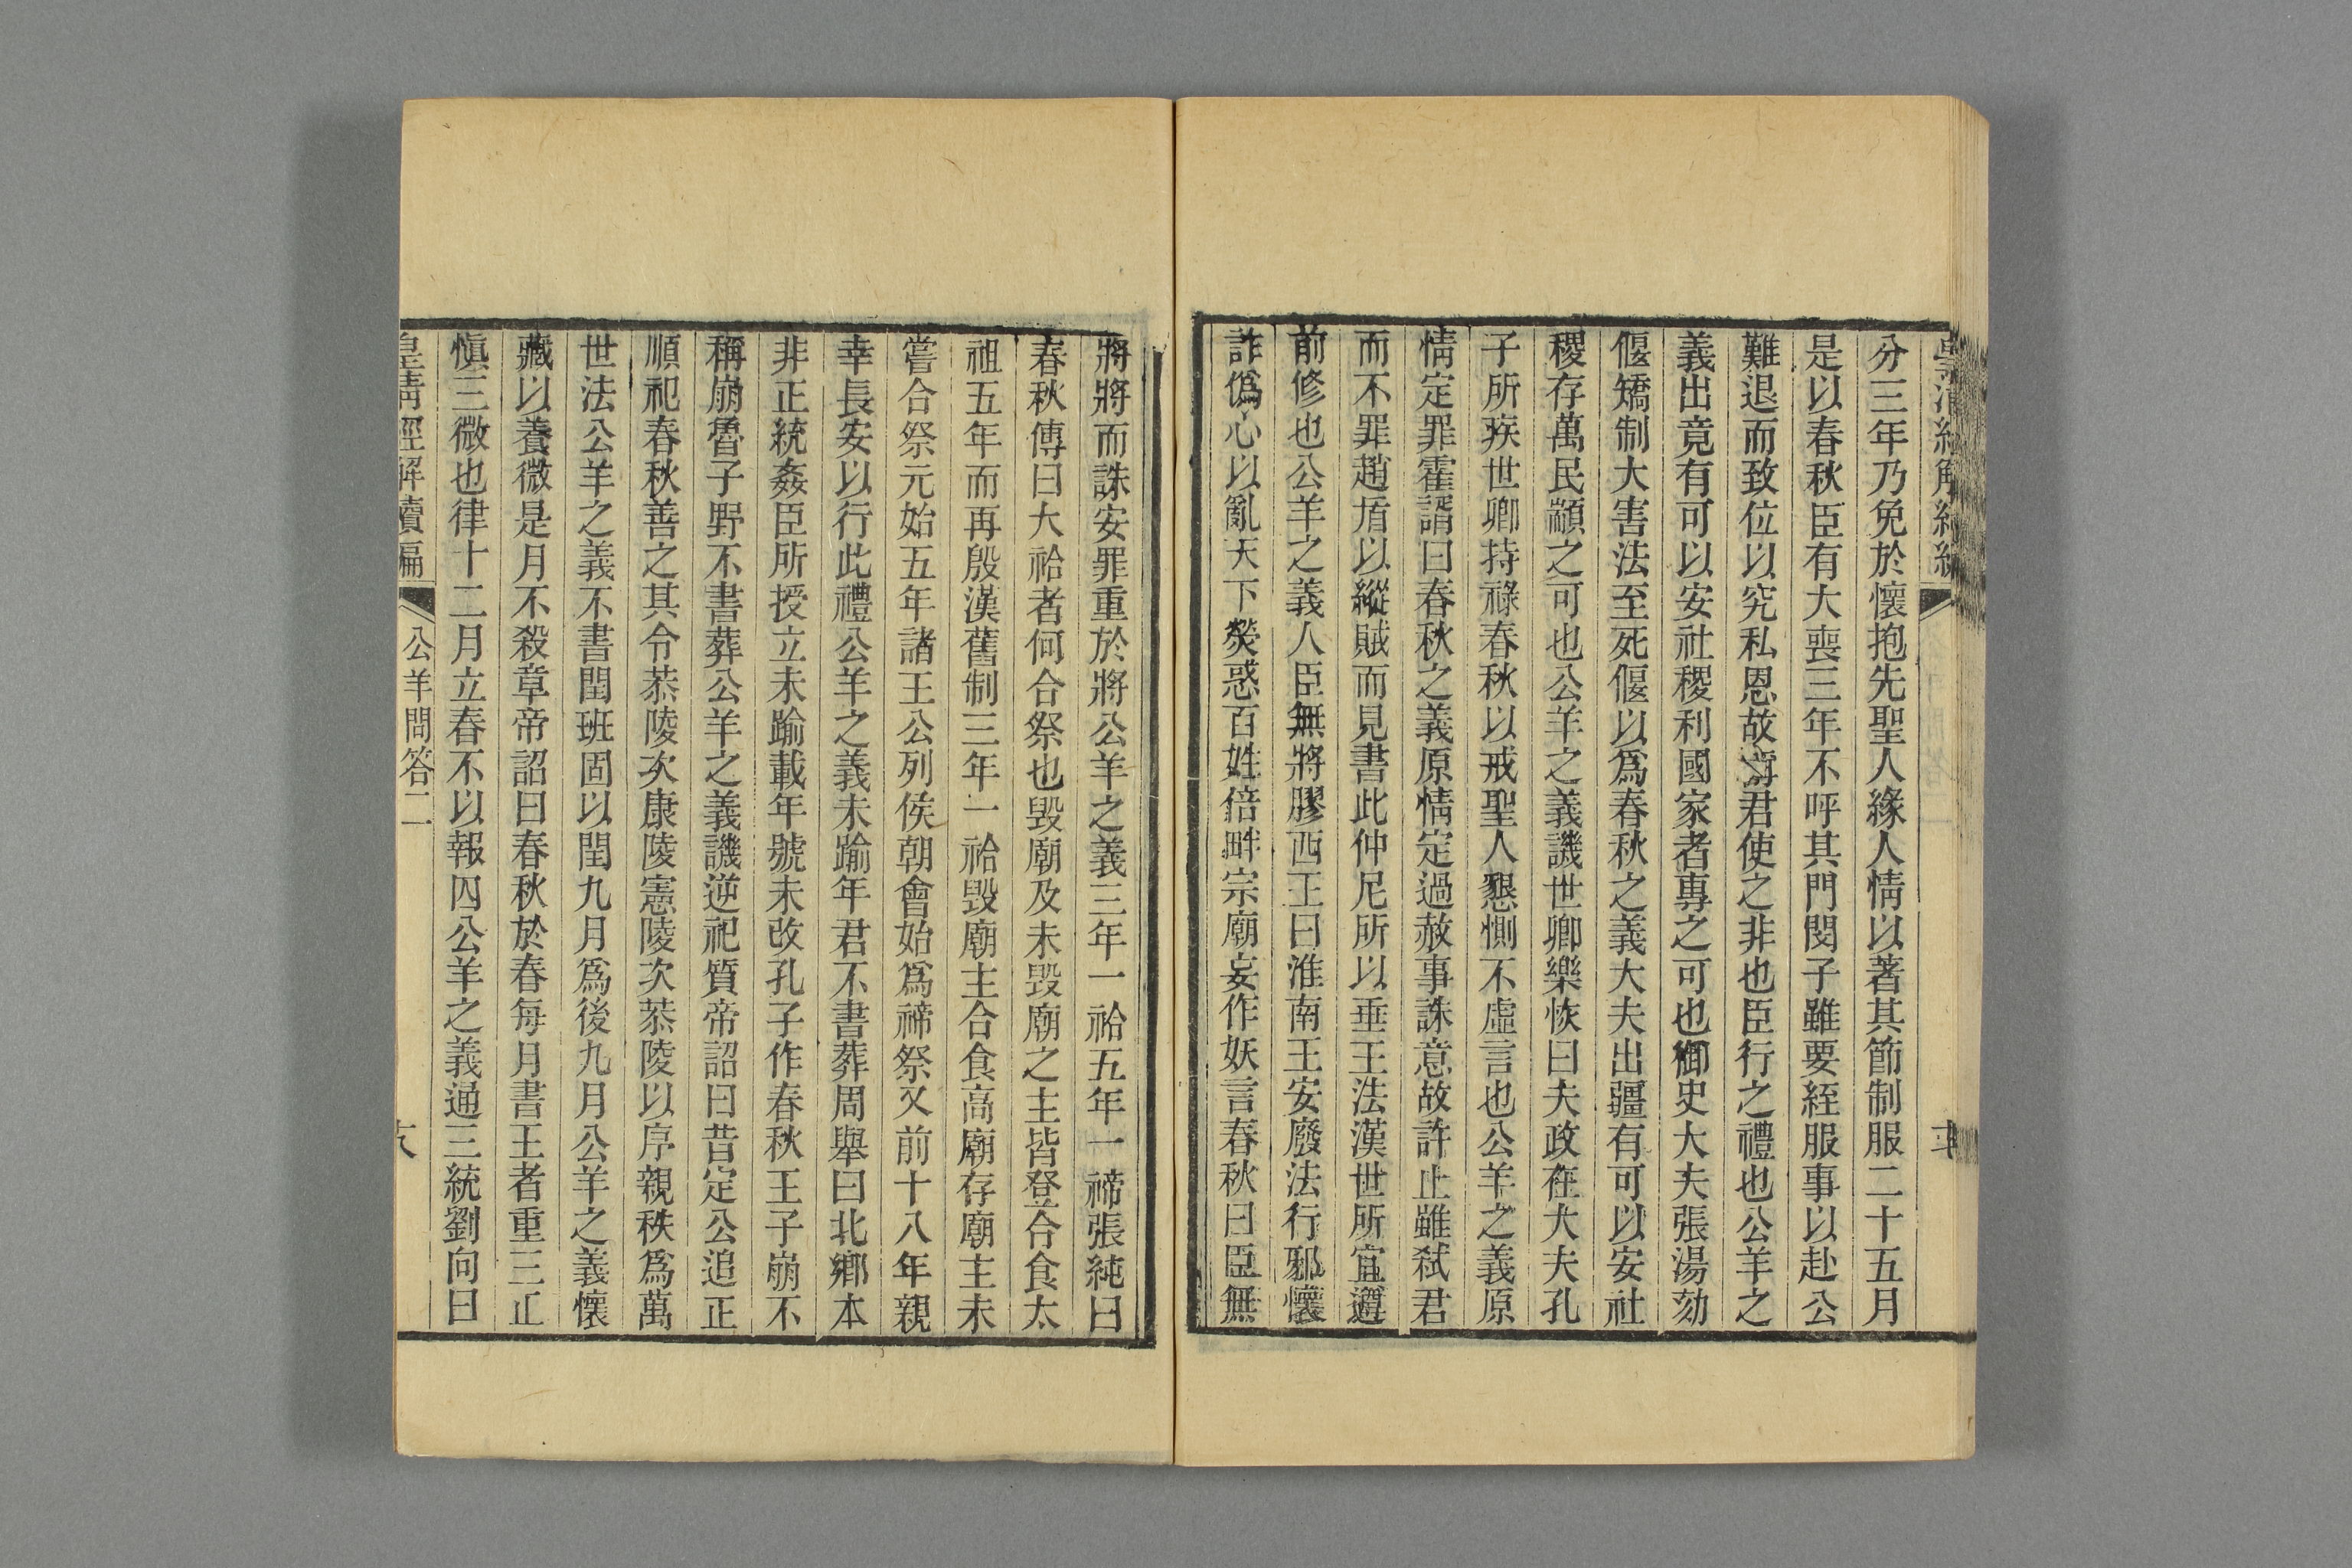 分三年乃免於懷抱先聖人緣人情以著其節制服二十五月
是以春秋臣有大喪三年不呼其門閔子雖要絰服事以赴公
難退而致位以究私恩故君使之非也臣行之禮也公羊之
義出竟有可以安社稷利國家者專之可也御史大夫張湯劾
偃矯制大害法至死偃以爲春秋之義大夫出疆有可以安社
稷存萬民顓之可也公羊之義譏世卿樂恢曰夫政在大夫孔
子所疾世卿持祿春秋以戒聖人懇惻不虛言也公羊之義原
情定罪霍諝曰春秋之義原情定過赦事誅意故許止雖弒君
而不罪趙盾以縱賊而見書此仲尼所以垂王法漢世所宜遵
前修也公羊之義人臣無將膠西王曰淮南王安廢法行邪懷
詐僞心以亂天下熒惑百姓倍畔宗廟妄作妖言春秋曰臣無
將將而誅安罪重於將公羊之義三年一祫五年一禘張純曰
春秋傳曰大祫者何合祭也毀廟及未毀廟之主皆登合食太
祖五年而再殷漢舊制三年一祫毀廟主合食高廟存廟主未
嘗合祭元始五年諸王公列侯朝會始爲禘祭又前十八年親
幸長安以行此禮公羊之義未踰年君不書葬周舉曰北鄉本
非正統姦臣所授立未踰載年號未改孔子作春秋王子崩不
稱崩魯子野不書葬公羊之義譏逆祀質帝詔曰昔定公追正
順祀春秋善之其令恭陵次康陵憲陵次恭陵以序親秩爲萬
世法公羊之義不書閏班固以閏九月爲後九月公羊之義懷
藏以養微是月不殺章帝詔曰春秋於春每月書王者重三正
愼三微也律十二月立春不以報囚公羊之義通三統劉向曰
皇淸經解續編 公羊問答二